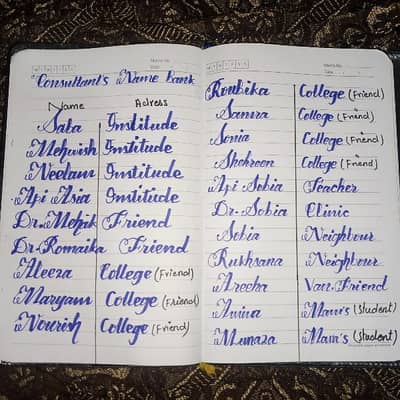 Consultant's Name bank
Name Adress
Saba Institude
Mehwish Institude
Neelam Institude
Api Asia Institude
Dr. Mehak Friend
Dr. Romaika Friend
Aleeza College (Friend)
Maryam College (Friend)
Nourish College (Friend)
Roubika College (Friend)
Samra College (Friend)
Sonia College (Friend)
Shehreen College (Friend)
Api Sobia Teacher
Dr. Sobia Clinic
Sobia Neighbour
Rukhsana Neighbour
Areeha Van Friend
Amna Mam's (Student)
Munaza Mam's (Student)